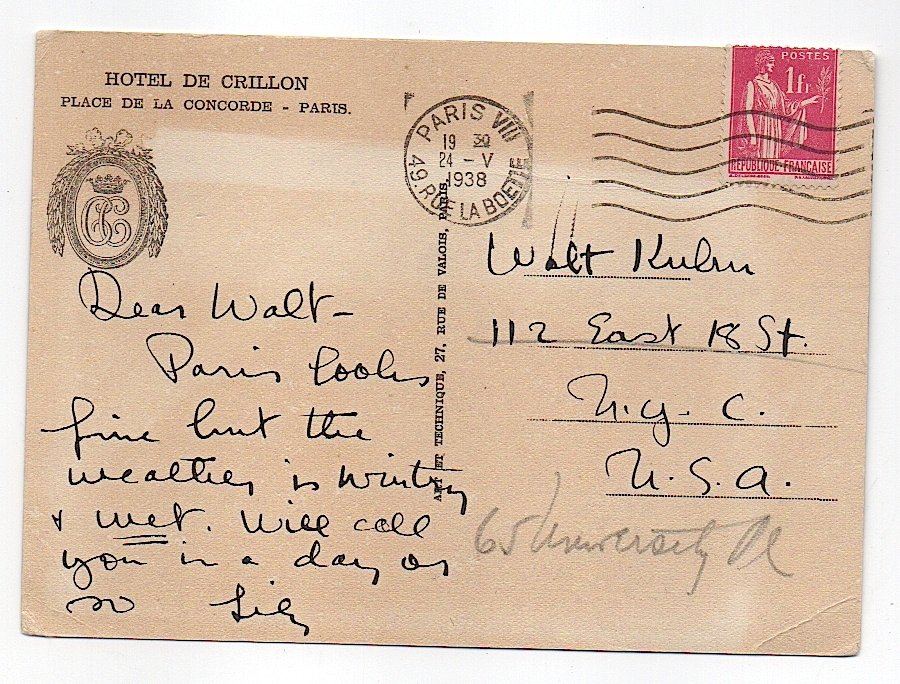 HOTEL DE CRILLON
PLACE DE LA CONCORDE - PARIS.
Dear Walt -
Paris looks
fine but the
weather is wintry
& wet. Will call
you in a day or
so Lily
ART ET TECHNIQUE, 27, RUE DE VALOIS, PARIS
PARIS VIII
19 30
24 - V
1938
49. RUE LA BOETIE
POSTES
1fr
REPUBLIQUE FRANÇAISE
Walt Kuhn
112 East 18 St.
N.Y. C.
U. S. A.
65 University Pl